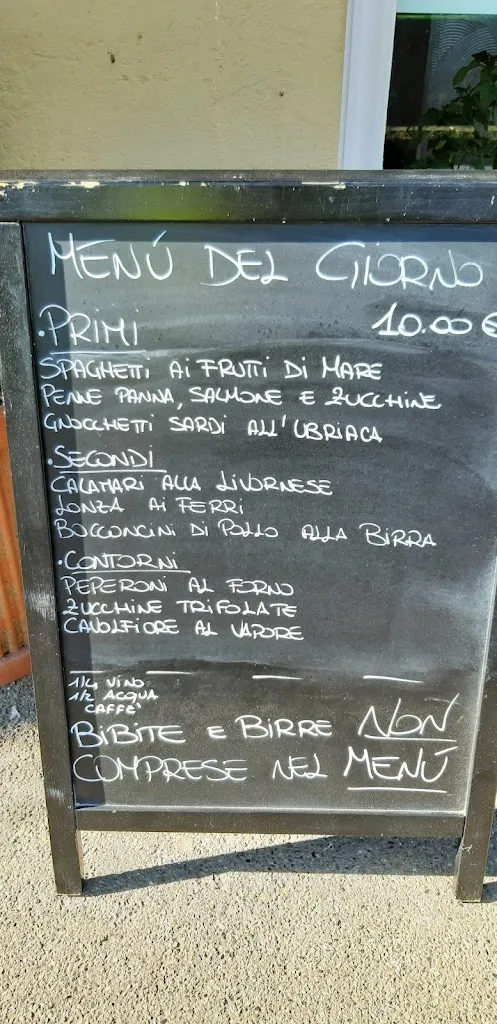 MENÚ DEL GIORNO
10.00 €
·PRIMI
SPAGHETTI AI FRUTTI DI MARE
PENNE PANNA, SALMONE E ZUCCHINE
GNOCCHETTI SARDI ALL'UBRIACA
·SECONDI
CALAMARI ALLA LIVORNESE
LONZA AI FERRI
BOCCONCINI DI POLLO ALLA BIRRA
·CONTORNI
PEPERONI AL FORNO
ZUCCHINE TRIFOLATE
CAVOLFIORE AL VAPORE
1/4 VINO
1/2 ACQUA
CAFFE'
BIBITE E BIRRE NON
COMPRESE NEL MENÚ